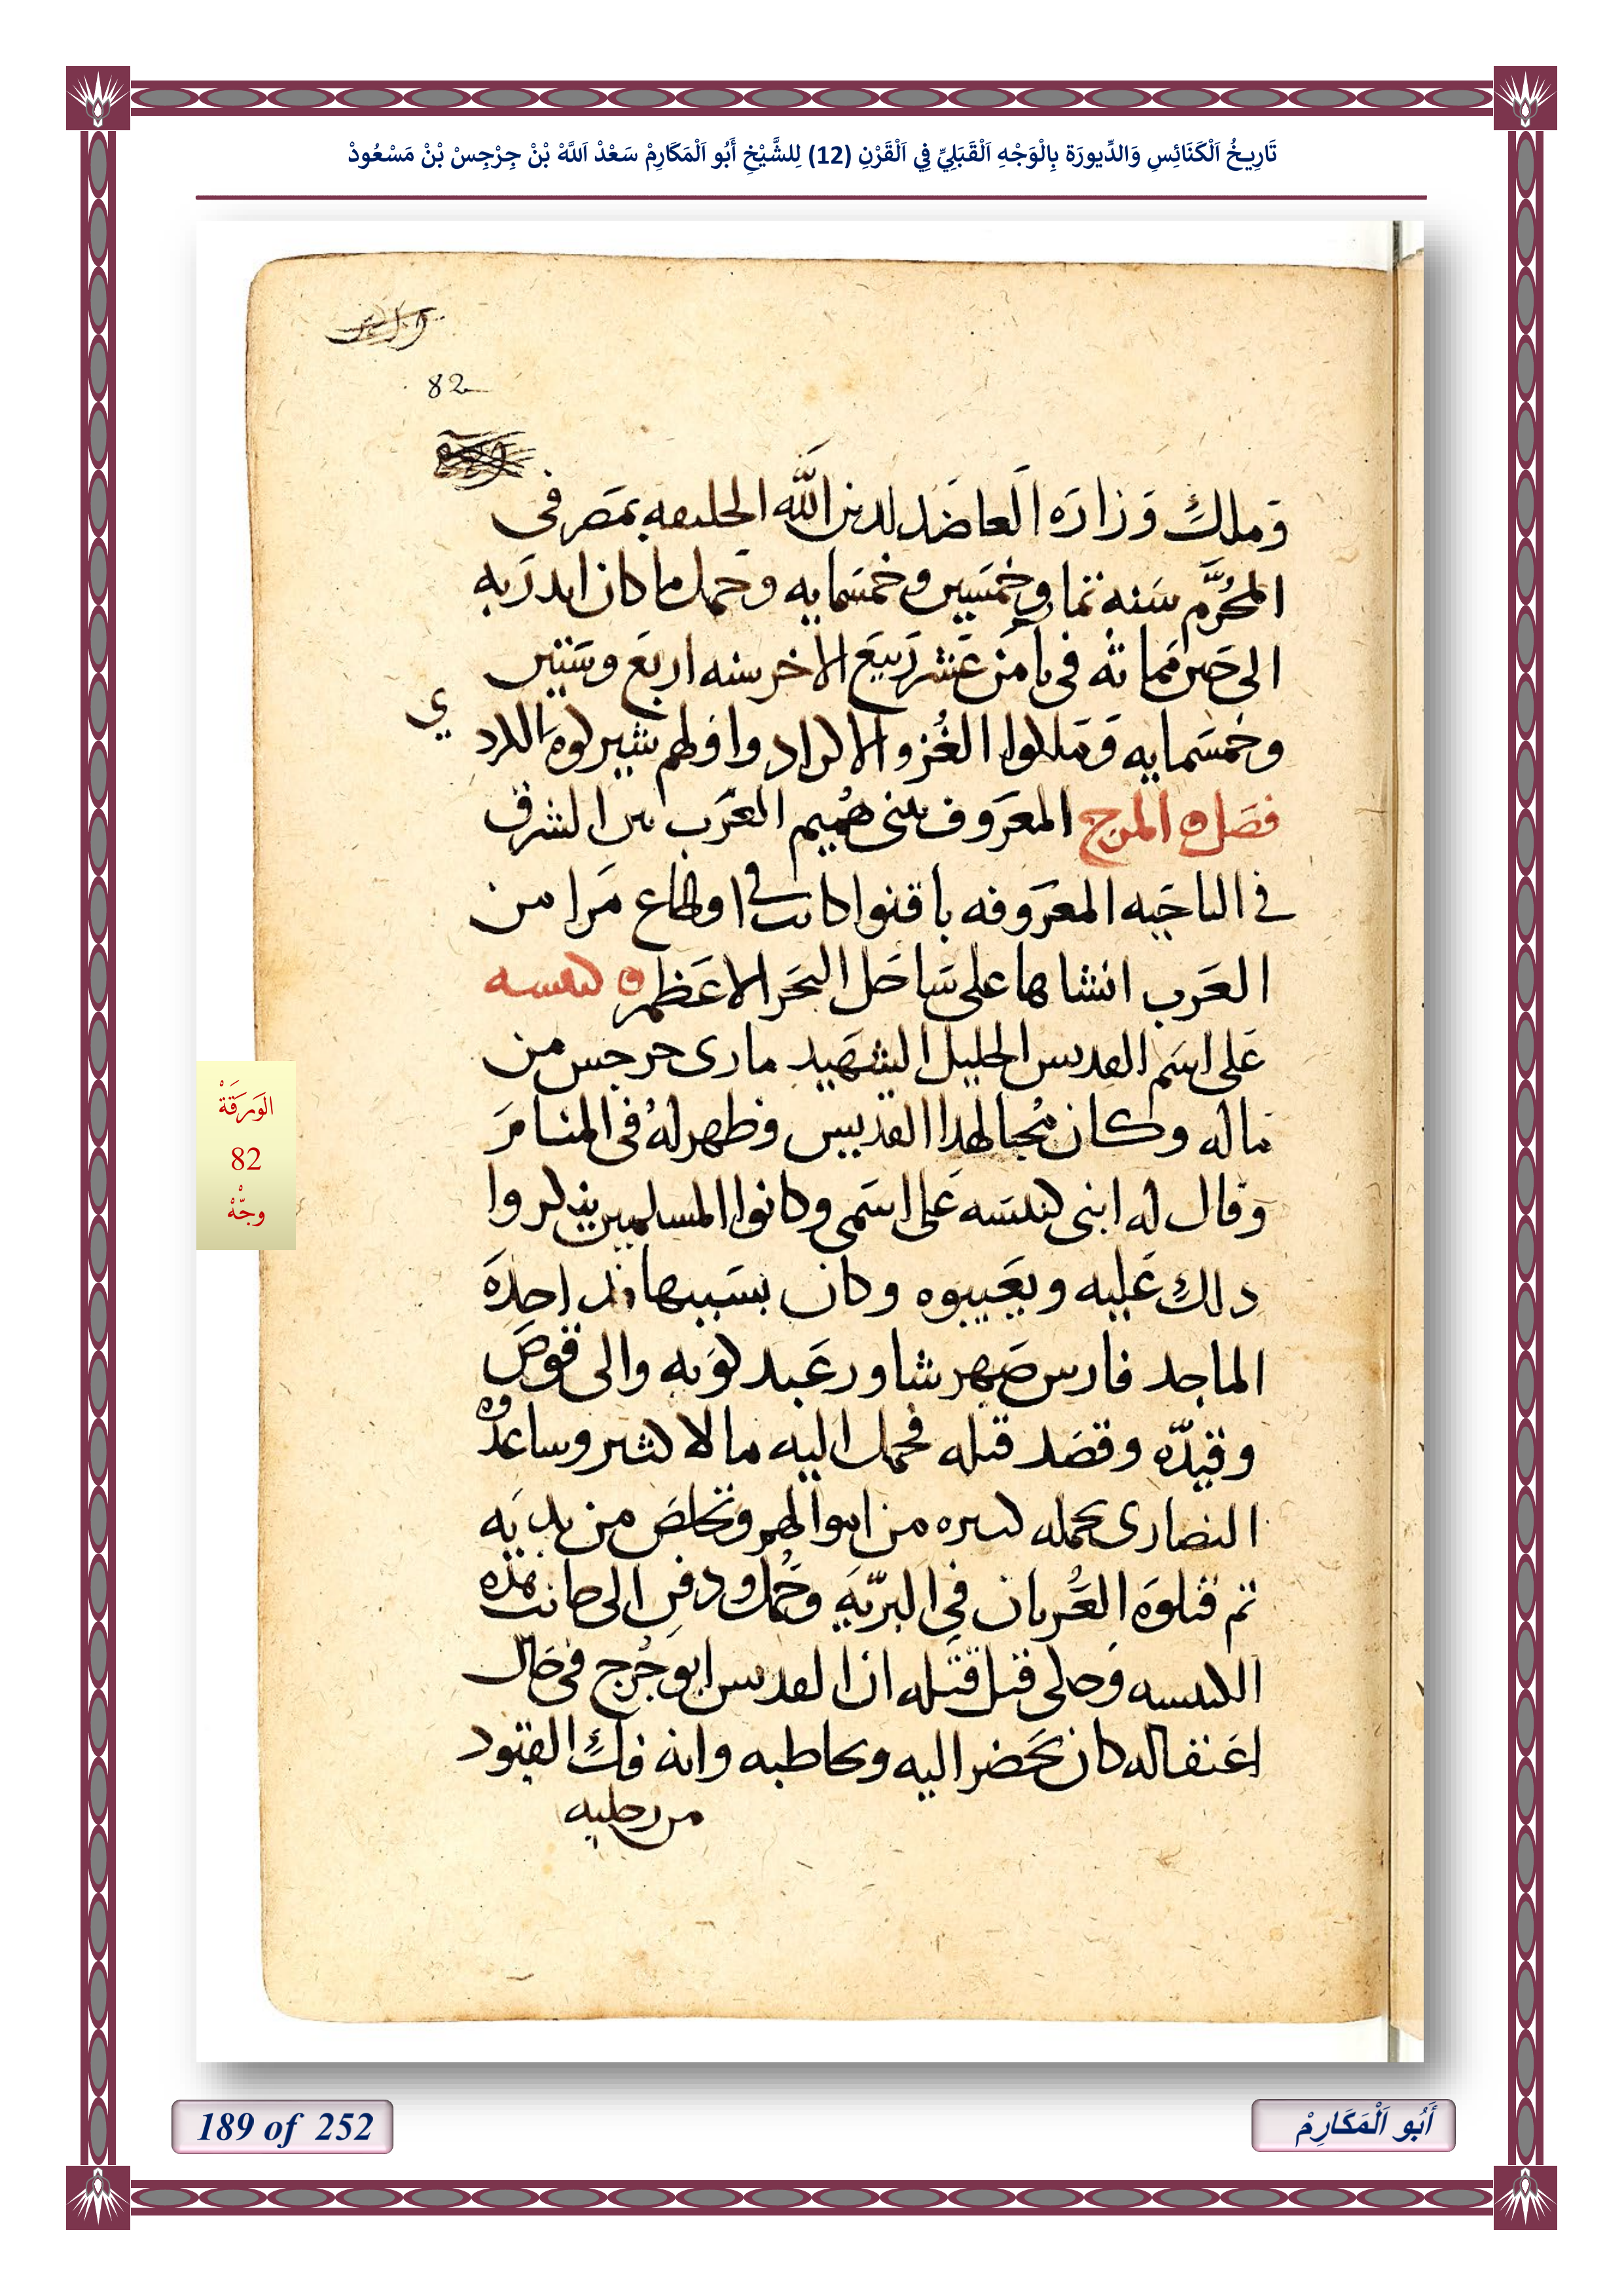 تَارِيخُ اَلْكَنَائِسِ وَالدِّيورَة بِالْوَجْهِ اَلْقَبَلِيِّ فِي اَلْقَرْنِ (12) لِلشَّيْخِ أَبُو اَلْمَكَارِمْ سَعْدْ اَللَّهْ بْنْ جِرْجِسْ بْنْ مَسْعُودْ
82
وملك وزاره العاضد لدين الله الخليفه بمصر فى
المحرم سنه ثمان وخمسين وخمسمايه وحمل ما كان
الى حين مماته فى ثامن عشر ربيع الاخر سنه اربع وستين
وخمسمايه وملكوا الغز والاكراد واولهم شيركوه الكردي
فصل ه المرج المعروف ببنى هميم العرب من الشرق
فى الناحيه المعروفه باقنوا كانت فى اقطاع مرا من
العرب انشاها على ساحل البحر الاعظم ه كنيسه
على اسم القديس الجليل الشهيد مارى جرجس من
ماله وكان محبا لهذا القديس وظهر له فى المنام
وقال له ابنى كنيسه على اسمى وكانوا المسلمين ينكروا
ذلك عليه ويعيبوه وكان بسببها قد اخذه
الماجد فارس صهر شاور عند والى قوص
وقيده وقصد قتله فحمل اليه مالا كثير وساعدوه
النصارى بجمله كبيره من اموالهم وتخلص من يديه
ثم قتلوه العربان فى البريه وحمل ودفن الى جانب هذه
الكنيسه وحكى قبل قتله ان القديس ابو جرج فى حال
اعتقاله كان يحضر اليه ويخاطبه وانه فك القيود
من رجليه
الوَرَقَةْ
82
وجّهْ
189 of 252
أَبُو اَلْمَكَارِمْ